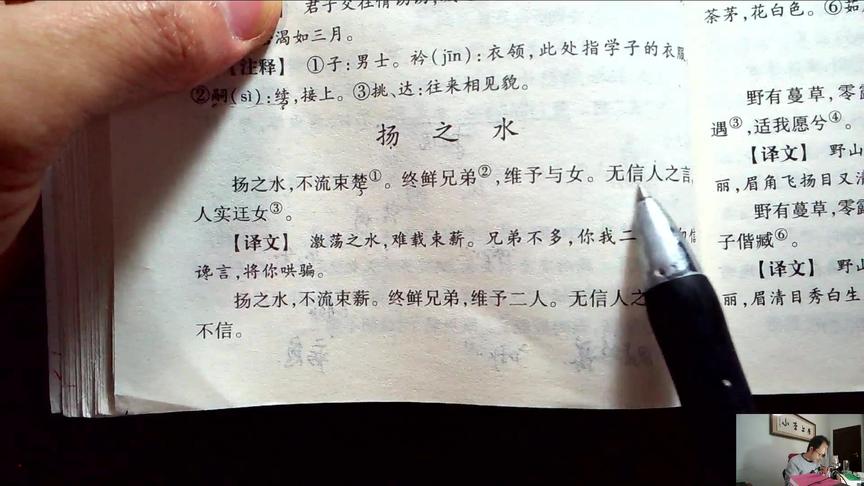 君子交往情
渴如三月。
【注释】 ①子:男士。衿(jīn):衣领,此处指学子的衣服
②嗣(sì):续,接上。③挑、达:往来相见貌。
扬之水
扬之水,不流束楚①。终鲜兄弟②,维予与女。无信人之言,
人实迋女③。
【译文】 激荡之水,难载束薪。兄弟不多,你我二
谗言,将你哄骗。
扬之水,不流束薪。终鲜兄弟,维予二人。无信人之
不信。
荼茅,花白色。⑥茹
野有蔓草,零露
遇③,适我愿兮④。
【译文】 野山
丽,眉角飞扬目又清
野有蔓草,零露
子偕臧⑥。
【译文】 野山
丽,眉清目秀白生